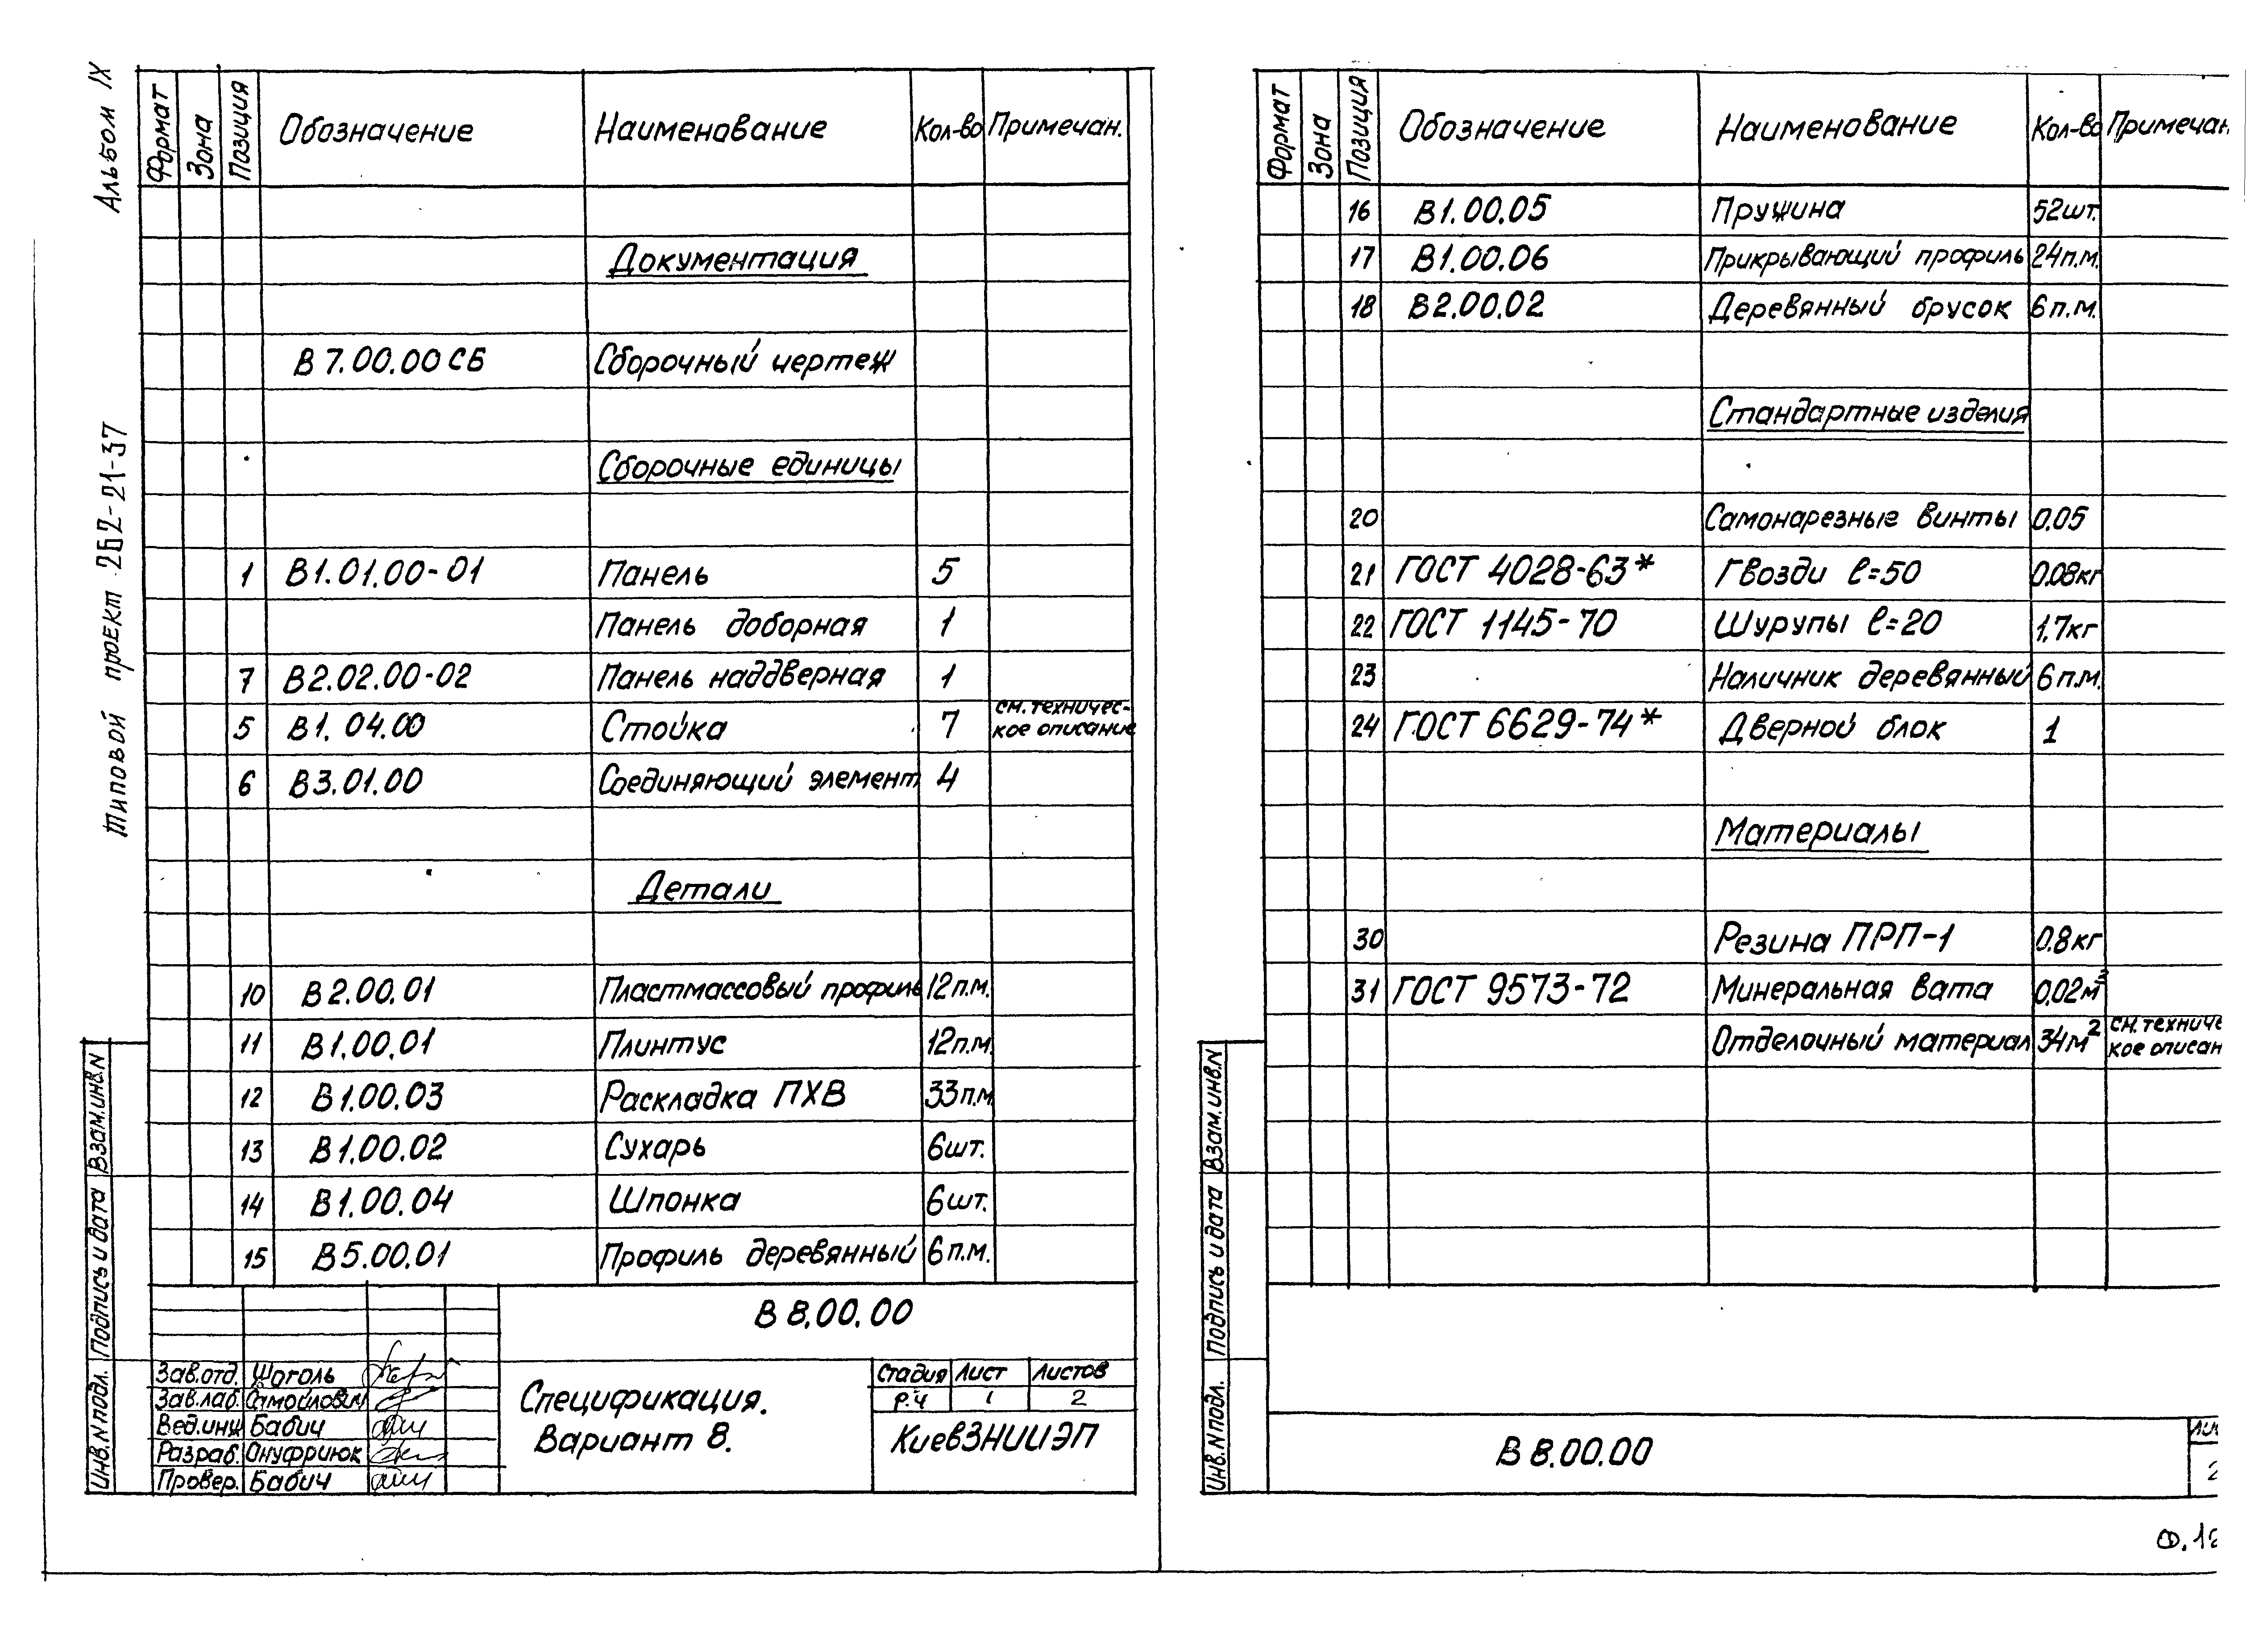 Альбом IX
Типовой проект 262-21-37
Формат Зона Позиция Обозначение Наименование Кол-во Примечан.
Документация
В 7.00.00 СБ Сборочный чертеж
Сборочные единицы
1 В1.01.00-01 Панель 5
Панель доборная 1
7 В2.02.00-02 Панель наддверная 1
5 В1.04.00 Стойка 7 см. техничес-
кое описание
6 В3.01.00 Соединяющий элемент 4
Детали
10 В2.00.01 Пластмассовый профиль 12п.м.
11 В1.00.01 Плинтус 12п.м.
12 В1.00.03 Раскладка ПХВ 33п.м.
13 В1.00.02 Сухарь 6шт.
14 В1.00.04 Шпонка 6шт.
15 В5.00.01 Профиль деревянный 6п.м.
Инв.N подл. Подпись и дата Взам.инв.N
В 8.00.00
Зав.отд. Шоголь
Зав.лаб. Самойлович
Вед.инж Бабич
Разраб. Онуфриюк
Провер. Бабич
Спецификация.
Вариант 8.
Стадия Лист Листов
Р.Ч 1 2
КиевЗНИИЭП
Формат Зона Позиция Обозначение Наименование Кол-во Примечан
16 В1.00.05 Пружина 52шт.
17 В1.00.06 Прикрывающий профиль 24п.м.
18 В2.00.02 Деревянный брусок 6п.м.
Стандартные изделия
20 Самонарезные винты 0.05
21 ГОСТ 4028-63* Гвозди ℓ=50 0.08кг
22 ГОСТ 1145-70 Шурупы ℓ=20 1,7кг
23 Наличник деревянный 6п.м.
24 ГОСТ 6629-74* Дверной блок 1
Материалы
30 Резина ПРП-1 0.8кг
31 ГОСТ 9573-72 Минеральная вата 0,02м³
Отделочный материал 34м² см. техниче
кое описан
Инв.N подл. Подпись и дата Взам.инв.N
В 8.00.00
Лис
2
Ф.12